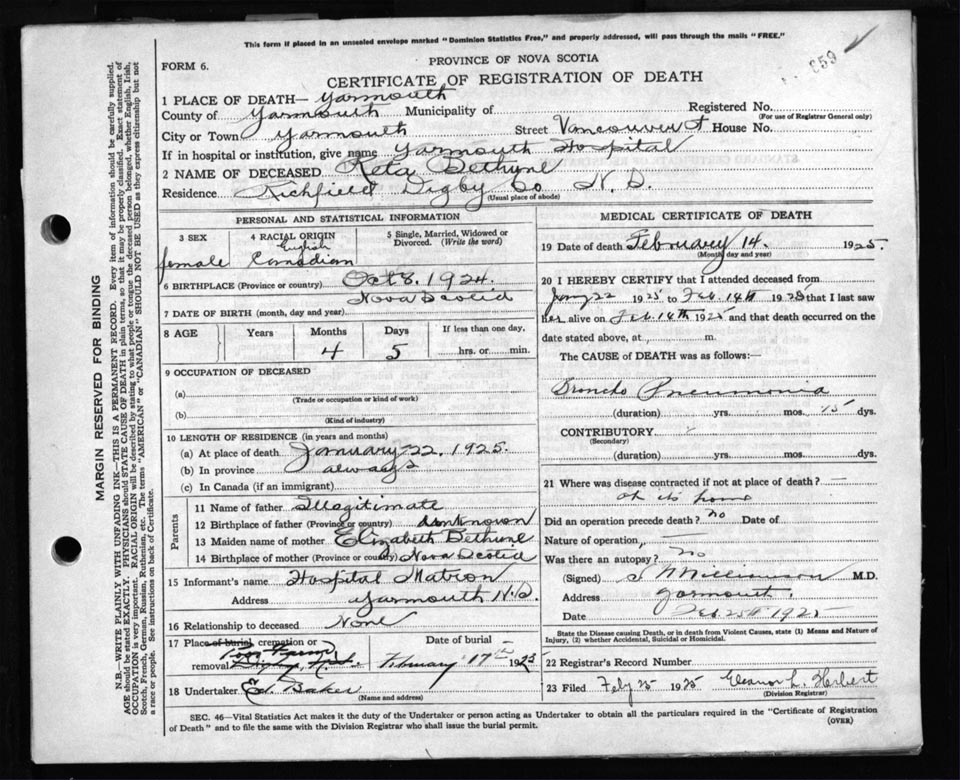 This form if placed in an unsealed envelope marked "Dominion Statistics Free," and properly addressed, will pass through the mails "FREE."
859
FORM 6.
PROVINCE OF NOVA SCOTIA
CERTIFICATE OF REGISTRATION OF DEATH
1 PLACE OF DEATH— Yarmouth
County of Yarmouth Municipality of
Registered No.
(For use of Registrar General only)
City or Town Yarmouth Street Vancouver St House No.
If in hospital or institution, give name Yarmouth Hospital
2 NAME OF DECEASED Reta Bethune
Residence Richfield Digby Co N.S.
(Usual place of abode)
PERSONAL AND STATISTICAL INFORMATION
3 SEX
female
4 RACIAL ORIGIN
English
Canadian
5 Single, Married, Widowed or Divorced. (Write the word)
6 BIRTHPLACE (Province or country) Oct 8. 1924.
Nova Scotia
7 DATE OF BIRTH (month, day and year)
8 AGE Years Months Days If less than one day,
4 5 hrs. or min.
9 OCCUPATION OF DECEASED
(a)
(Trade or occupation or kind of work)
(b)
(Kind of industry)
10 LENGTH OF RESIDENCE (in years and months)
(a) At place of death January 22, 1925.
(b) In province always
(c) In Canada (if an immigrant)
Parents
11 Name of father Illegitimate
12 Birthplace of father (Province or country) Unknown
13 Maiden name of mother Elizabeth Bethune
14 Birthplace of mother (Province or country) Nova Scotia
15 Informant's name Hospital Matron
Address Yarmouth N.S.
16 Relationship to deceased None
17 Place of burial, cremation or removal Poor Farm
Digby, N.S.
Date of burial
February 17th 1925
18 Undertaker Ed. Baker
(Name and address)
MEDICAL CERTIFICATE OF DEATH
19 Date of death February 14. 1925.
(Month, day and year)
20 I HEREBY CERTIFY that I attended deceased from
Jany 22 1925 to Feb. 14th 1925 that I last saw
her alive on Feb 14th 1925 and that death occurred on the
date stated above, at m.
The CAUSE of DEATH was as follows:—
Broncho Pneumonia
(duration) yrs. mos. 15 dys.
CONTRIBUTORY
(Secondary)
(duration) yrs. mos. dys.
21 Where was disease contracted if not at place of death? —
at its home
Did an operation precede death? no Date of
Nature of operation, —
Was there an autopsy? no
(Signed) Williamson M.D.
Address Yarmouth.
Date Feb. 25th 1925
State the Disease causing Death, or in death from Violent Causes, state (1) Means and Nature of
Injury, (2) whether Accidental, Suicidal or Homicidal.
22 Registrar's Record Number
23 Filed Feby 25 1925 Eleanor L. Herbert
(Division Registrar)
SEC. 46—Vital Statistics Act makes it the duty of the Undertaker or person acting as Undertaker to obtain all the particulars required in the "Certificate of Registration
of Death" and to file the same with the Division Registrar who shall issue the burial permit.
(OVER)
MARGIN RESERVED FOR BINDING
N.B.—WRITE PLAINLY WITH UNFADING INK—THIS IS A PERMANENT RECORD. Every item of information should be carefully supplied.
AGE should be stated EXACTLY. PHYSICIANS should STATE CAUSE OF DEATH in plain terms, so that it may be properly classified. Exact statement of
OCCUPATION is very important. RACIAL ORIGIN will be described by stating to what people or tongue the deceased person belonged, whether English, Irish,
Scotch, French, German, Russian, Ruthenian, etc. The terms "AMERICAN" or "CANADIAN" SHOULD NOT BE USED as they express citizenship but not
a race or people. See instructions on back of Certificate.